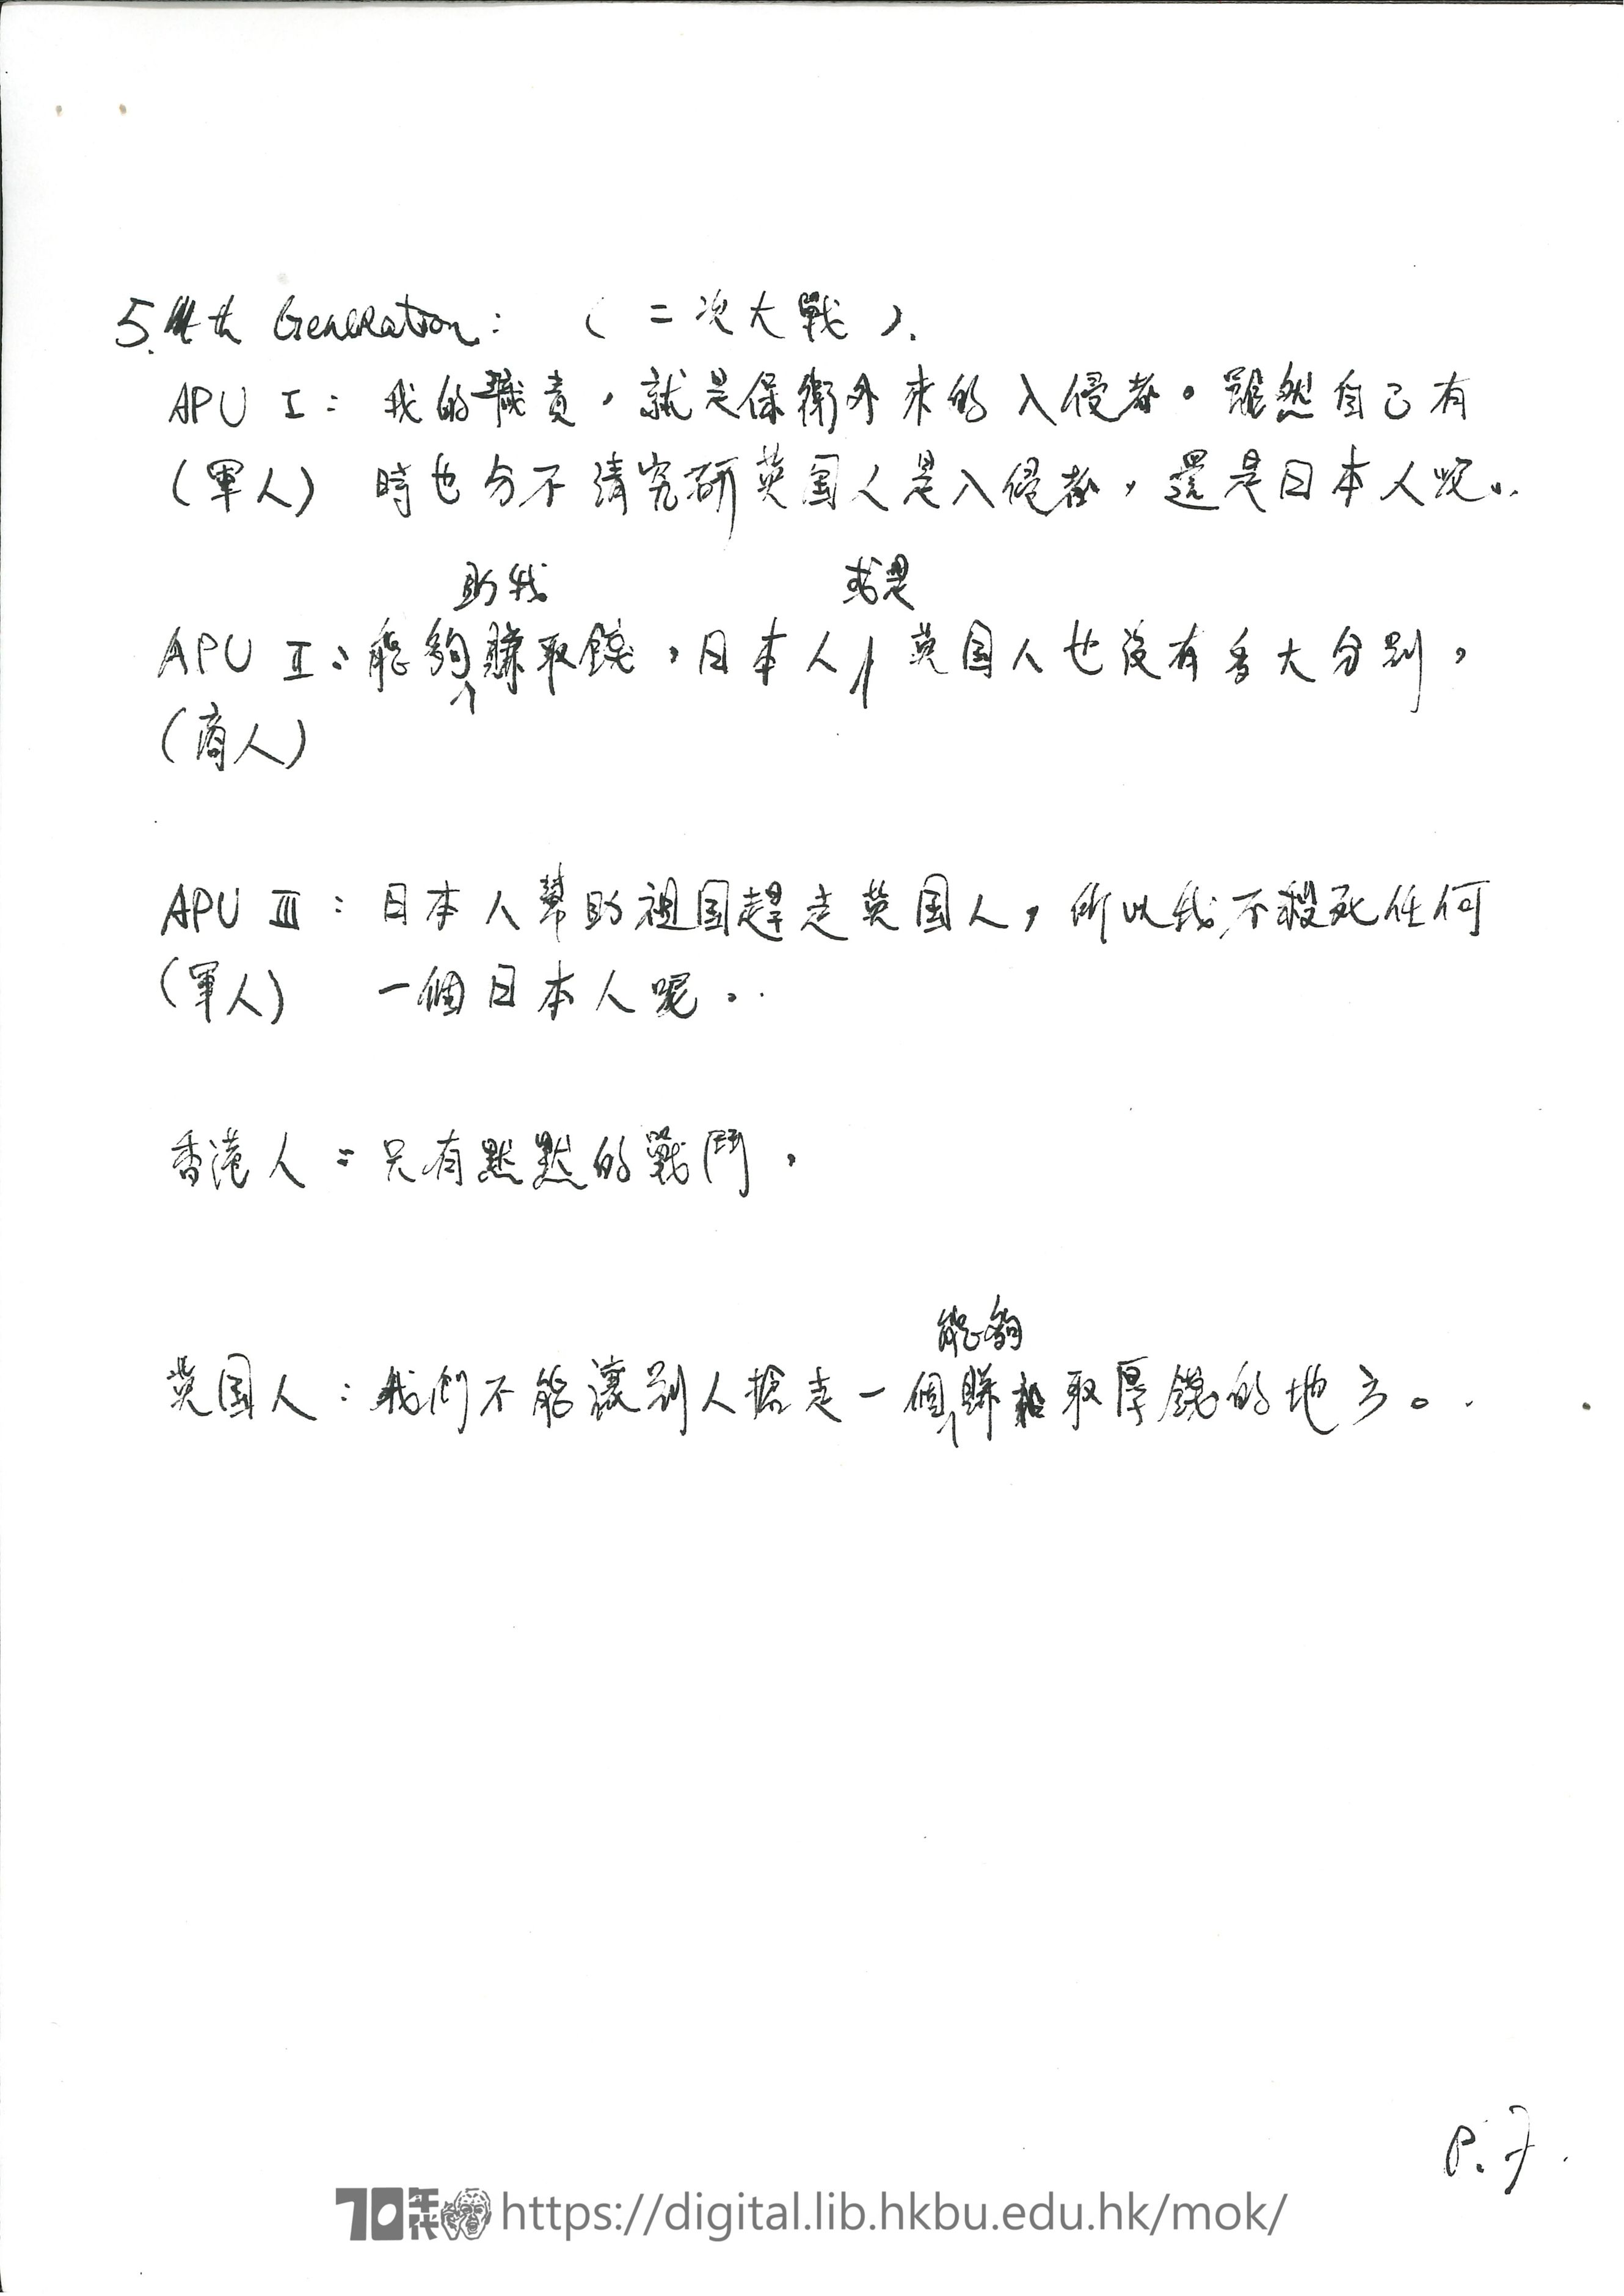 5. 4th Generation: (二次大戰).
APU I: 我的職責，就是保衛外來的入侵者。雖然自己有
(軍人) 時也分不清究研英国人是入侵者，還是日本人呢。
助我 或是
APU II: 能夠賺取錢，日本人英国人也沒有多大分別，
(商人)
APU III: 日本人幫助祖国趕走英国人，所以我不殺死任何
(軍人) 一個日本人呢。
香港人: 只有默默的戰鬥，
能夠
英国人: 我們不能讓別人搶走一個賺取厚錢的地方。
P.7.
70年代 https://digital.lib.hkbu.edu.hk/mok/